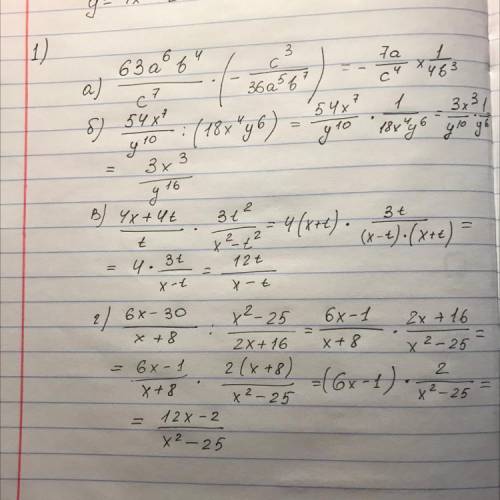 1)
а) 63a⁶b⁴/c⁷ · (- c³/36a⁵b⁷) = - 7a/c⁴ × 1/4b³
б) 54x⁷/y¹⁰ : (18x⁴y⁶) = 54x⁷/y¹⁰ · 1/18x⁴y⁶ = 3x³/y¹⁰ · 1/y⁶
= 3x³/y¹⁶
в) 4x+4t/t · 3t²/x²-t² = 4(x+t) · 3t/(x-t)·(x+t) =
= 4 · 3t/x-t = 12t/x-t
г) 6x-30/x+8 : x²-25/2x+16 = 6x-1/x+8 · 2x+16/x²-25 =
= 6x-1/x+8 · 2(x+8)/x²-25 = (6x-1) · 2/x²-25 =
= 12x-2/x²-25